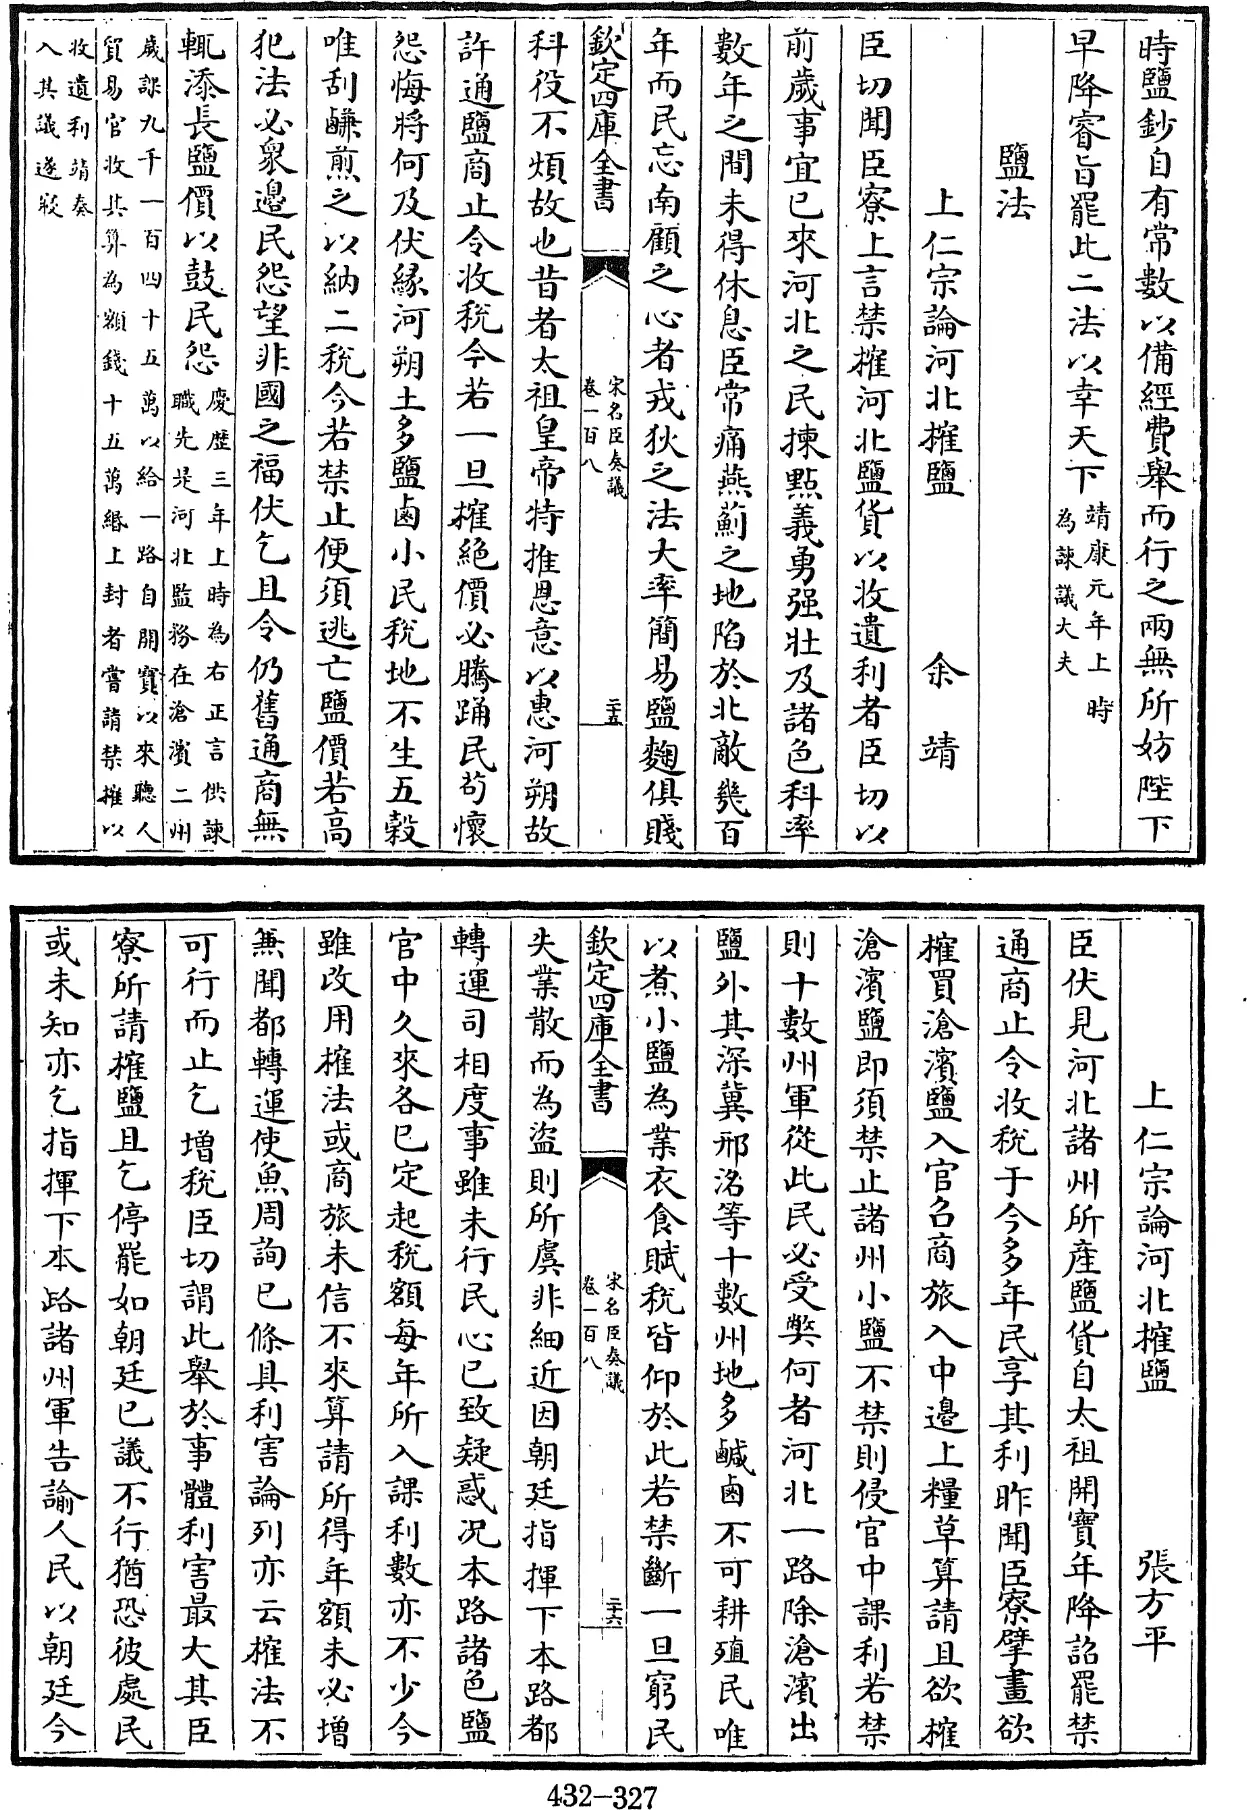 時鹽鈔自有常數以備經費舉而行之兩無所妨陛下
早降睿旨罷此二法以幸天下靖康元年上時
為諫議大夫
鹽法
上仁宗論河北榷鹽 余靖
臣切聞臣寮上言禁榷河北鹽貨以收遺利者臣切以
前歲事宜已來河北之民揀點義勇强壯及諸色科率
數年之間未得休息臣常痛燕薊之地陷於北敵幾百
年而民忘南顧之心者戎狄之法大率簡易鹽麴俱賤
欽定四庫全書
宋名臣奏議
卷一百八
二十五
科役不煩故也昔者太祖皇帝特推恩意以惠河朔故
許通鹽商止令收稅今若一旦榷絶價必騰踊民苟懷
怨悔將何及伏緣河朔土多鹽鹵小民稅地不生五穀
唯刮鹻煎之以納二稅今若禁止便須逃亡鹽價若高
犯法必衆邉民怨望非國之福伏乞且令仍舊通商無
輒添長鹽價以鼓民怨慶歴三年上時為右正言供諫
職先是河北監務在滄濱二州
歲課九千一百四十五萬以給一路自開寳以來聽人
貿易官收其算為額錢十五萬緡上封者嘗請禁榷以
收遺利靖奏
入其議遂寢
上仁宗論河北榷鹽 張方平
臣伏見河北諸州所産鹽貨自太祖開寶年降詔罷禁
通商止令收稅于今多年民享其利昨聞臣寮擘畫欲
榷買滄濱鹽入官召商旅入中邉上糧草算請且欲榷
滄濱鹽即須禁止諸州小鹽不禁則侵官中課利若禁
則十數州軍從此民必受獘何者河北一路除滄濱出
鹽外其深冀邢洺等十數州地多鹹鹵不可耕殖民唯
以煮小鹽為業衣食賦稅皆仰於此若禁斷一旦窮民
欽定四庫全書
宋名臣奏議
卷一百八
二十六
失業散而為盜則所虞非細近因朝廷指揮下本路都
轉運司相度事雖未行民心已致疑惑况本路諸色鹽
官中久來各已定起稅額每年所入課利數亦不少今
雖改用榷法或商旅未信不來算請所得年額未必增
兼聞都轉運使魚周詢已條具利害論列亦云榷法不
可行而止乞增稅臣切謂此舉於事體利害最大其臣
寮所請榷鹽且乞停罷如朝廷已議不行猶恐彼處民
或未知亦乞指揮下本路諸州軍告諭人民以朝廷今
432-327